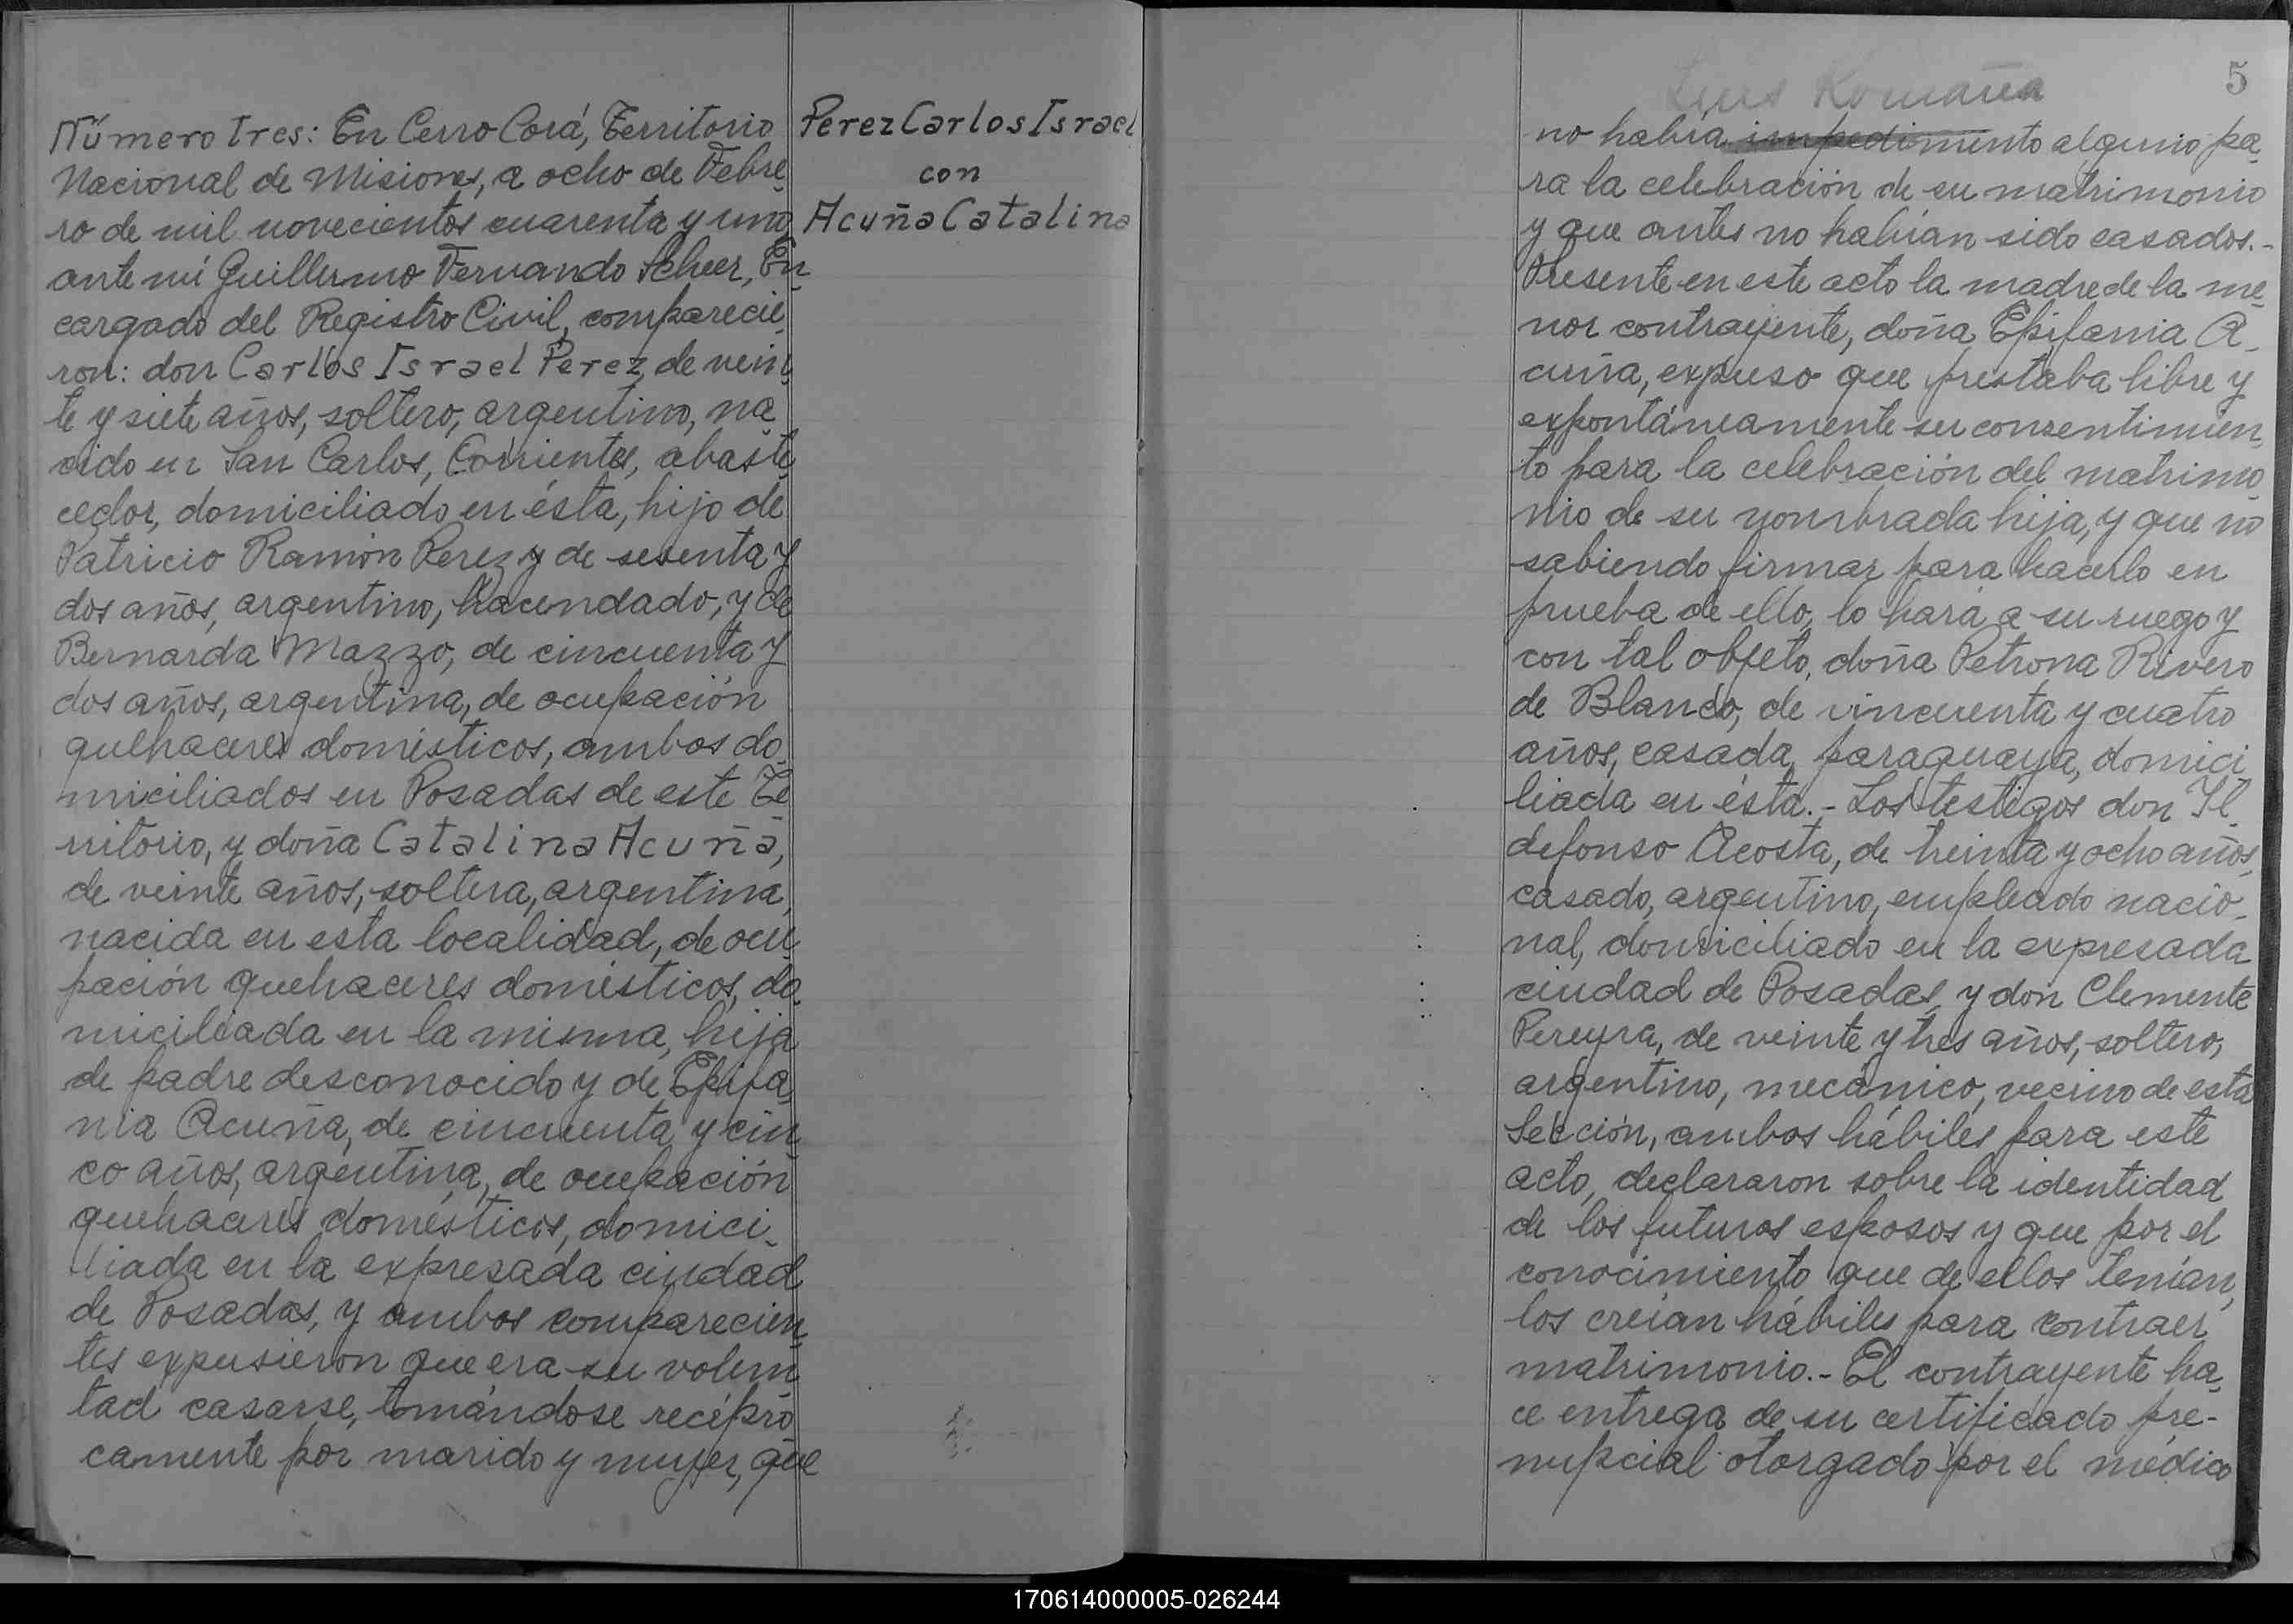 Número tres: En Cerro Corá, Territorio
Nacional de Misiones, a ocho de Febre_
ro de mil novecientos cuarenta y uno,
ante mí Guillermo Fernando Scheer, En_
cargado del Registro Civil, comparecie_
ron: don Carlos Israel Perez, de vein_
te y siete años, soltero, argentino, na_
cido en San Carlos, Corrientes, abaste_
cedor, domiciliado en ésta, hijo de
Patricio Ramón Perez y de sesenta y
dos años, argentino, hacendado, y de
Bernarda Mazzo, de cincuenta y
dos años, argentina, de ocupación
quehaceres domésticos, ambos do_
miciliados en Posadas de este Te_
rritorio, y doña Catalina Acuña,
de veinte años, soltera, argentina,
nacida en esta localidad, de ocu_
pación quehaceres domésticos, do_
miciliada en la misma, hija
de padre desconocido y de Epifa_
nia Acuña, de cincuenta y cin_
co años, argentina, de ocupación
quehaceres domésticos, domici_
liada en la expresada ciudad
de Posadas, y ambos comparecien_
tes expusieron que era su volun_
tad casarse, tomándose recípro_
camente por marido y mujer, que
Perez Carlos Israel
con
Acuña Catalina
5
Luis Romaña
no había impedimento alguno pa_
ra la celebración de su matrimonio
y que antes no habían sido casados.-
Presente en este acto la madre de la me_
nor contrayente, doña Epifania A_
cuña, expuso que prestaba libre y
expontáneamente su consentimien_
to para la celebración del matrimo_
nio de su nombrada hija, y que no
sabiendo firmar para hacerlo en
prueba de ello, lo hará a su ruego y
con tal objeto, doña Petrona Rivero
de Blanco, de cincuenta y cuatro
años, casada, paraguaya, domici_
liada en ésta.- Los testigos don Il_
defonso Acosta, de treinta y ocho años,
casado, argentino, empleado nacio_
nal, domiciliado en la expresada
ciudad de Posadas, y don Clemente
Pereyra, de veinte y tres años, soltero,
argentino, mecánico, vecino de esta
Sección, ambos hábiles para este
acto, declararon sobre la identidad
de los futuros esposos y que por el
conocimiento que de ellos tenían,
los creían hábiles para contraer
matrimonio.- El contrayente ha_
ce entrega de su certificado pre-
nupcial otorgado por el médico
170614000005-026244